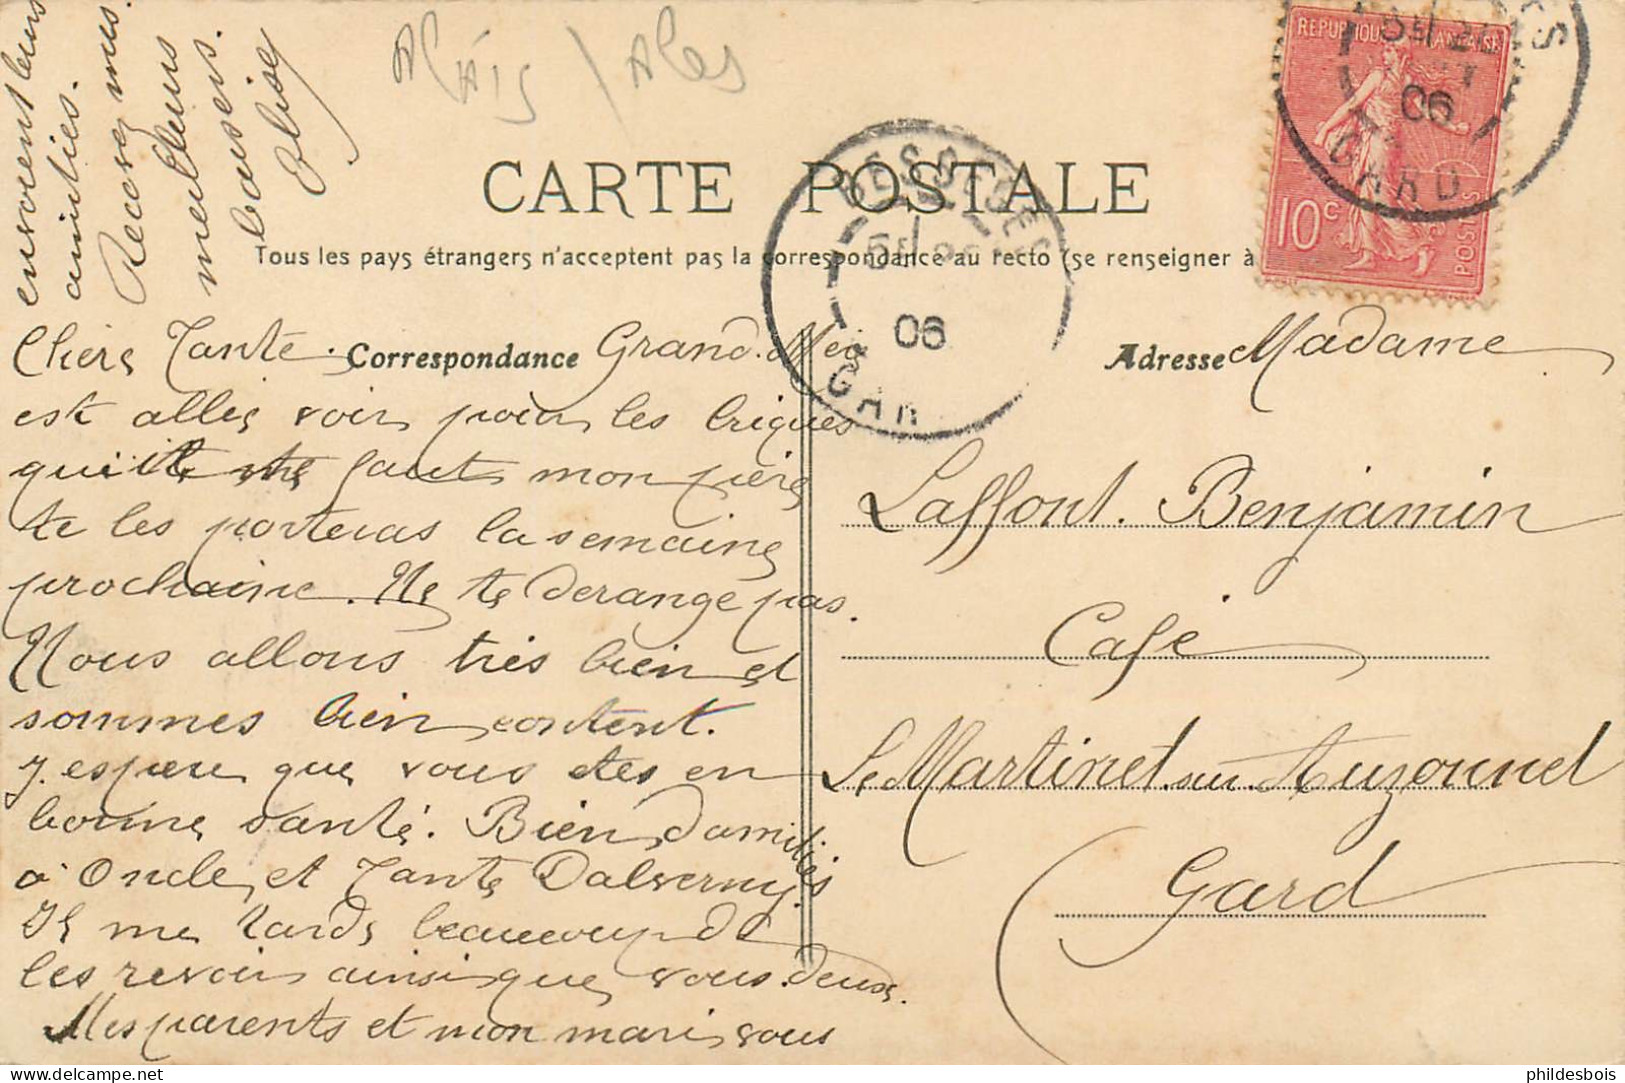 Alais / Ales
CARTE POSTALE
Tous les pays étrangers n'acceptent pas la correspondance au recto (se renseigner à
REPUBLIQUE FRANÇAISE
10c
POSTES
06
GARD
BESSEGES
06
GAR
Correspondance
Chère Tante. Grand. Mère
est allés voir pour les briques
qu'il te faut mon père
te les porteras la semaine
prochaine. Ne te derange pas.
Nous allons très bien et
sommes bien content.
J espere que vous etes en
bonne santé. Bien damitiés
à Oncle et Tante Dalverny.
Il me tarde beaucoup de
les revoir ainsi que vous deux.
Mes parents et mon mari vous
envoient leurs
amitiés.
Recevez nos
meilleurs
baisers.
Elise
Adresse Madame
Laffont. Benjamin
Café
Le Martinet. sur. Auzonnet
Gard
phildesbois